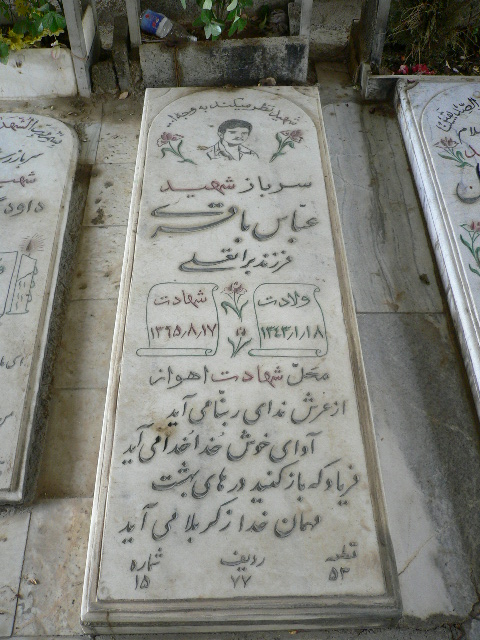 شهید نظر میکند به وجه الله
سرباز شهید
عباس باقری
فرزند براتعلی
ولادت
۱۳۴۳/۱/۱۸
شهادت
۱۳۶۵/۸/۱۷
محل شهادت اهواز
از عرش ندای ربنا می آید
آوای خوش خدا خدا می آید
فریاد که باز کنید در های بهشت
مهمان خدا ز کربلا می آید
قطعه ردیف شماره
۵۳ ۷۷ ۱۵
سرباز
شهید
داود